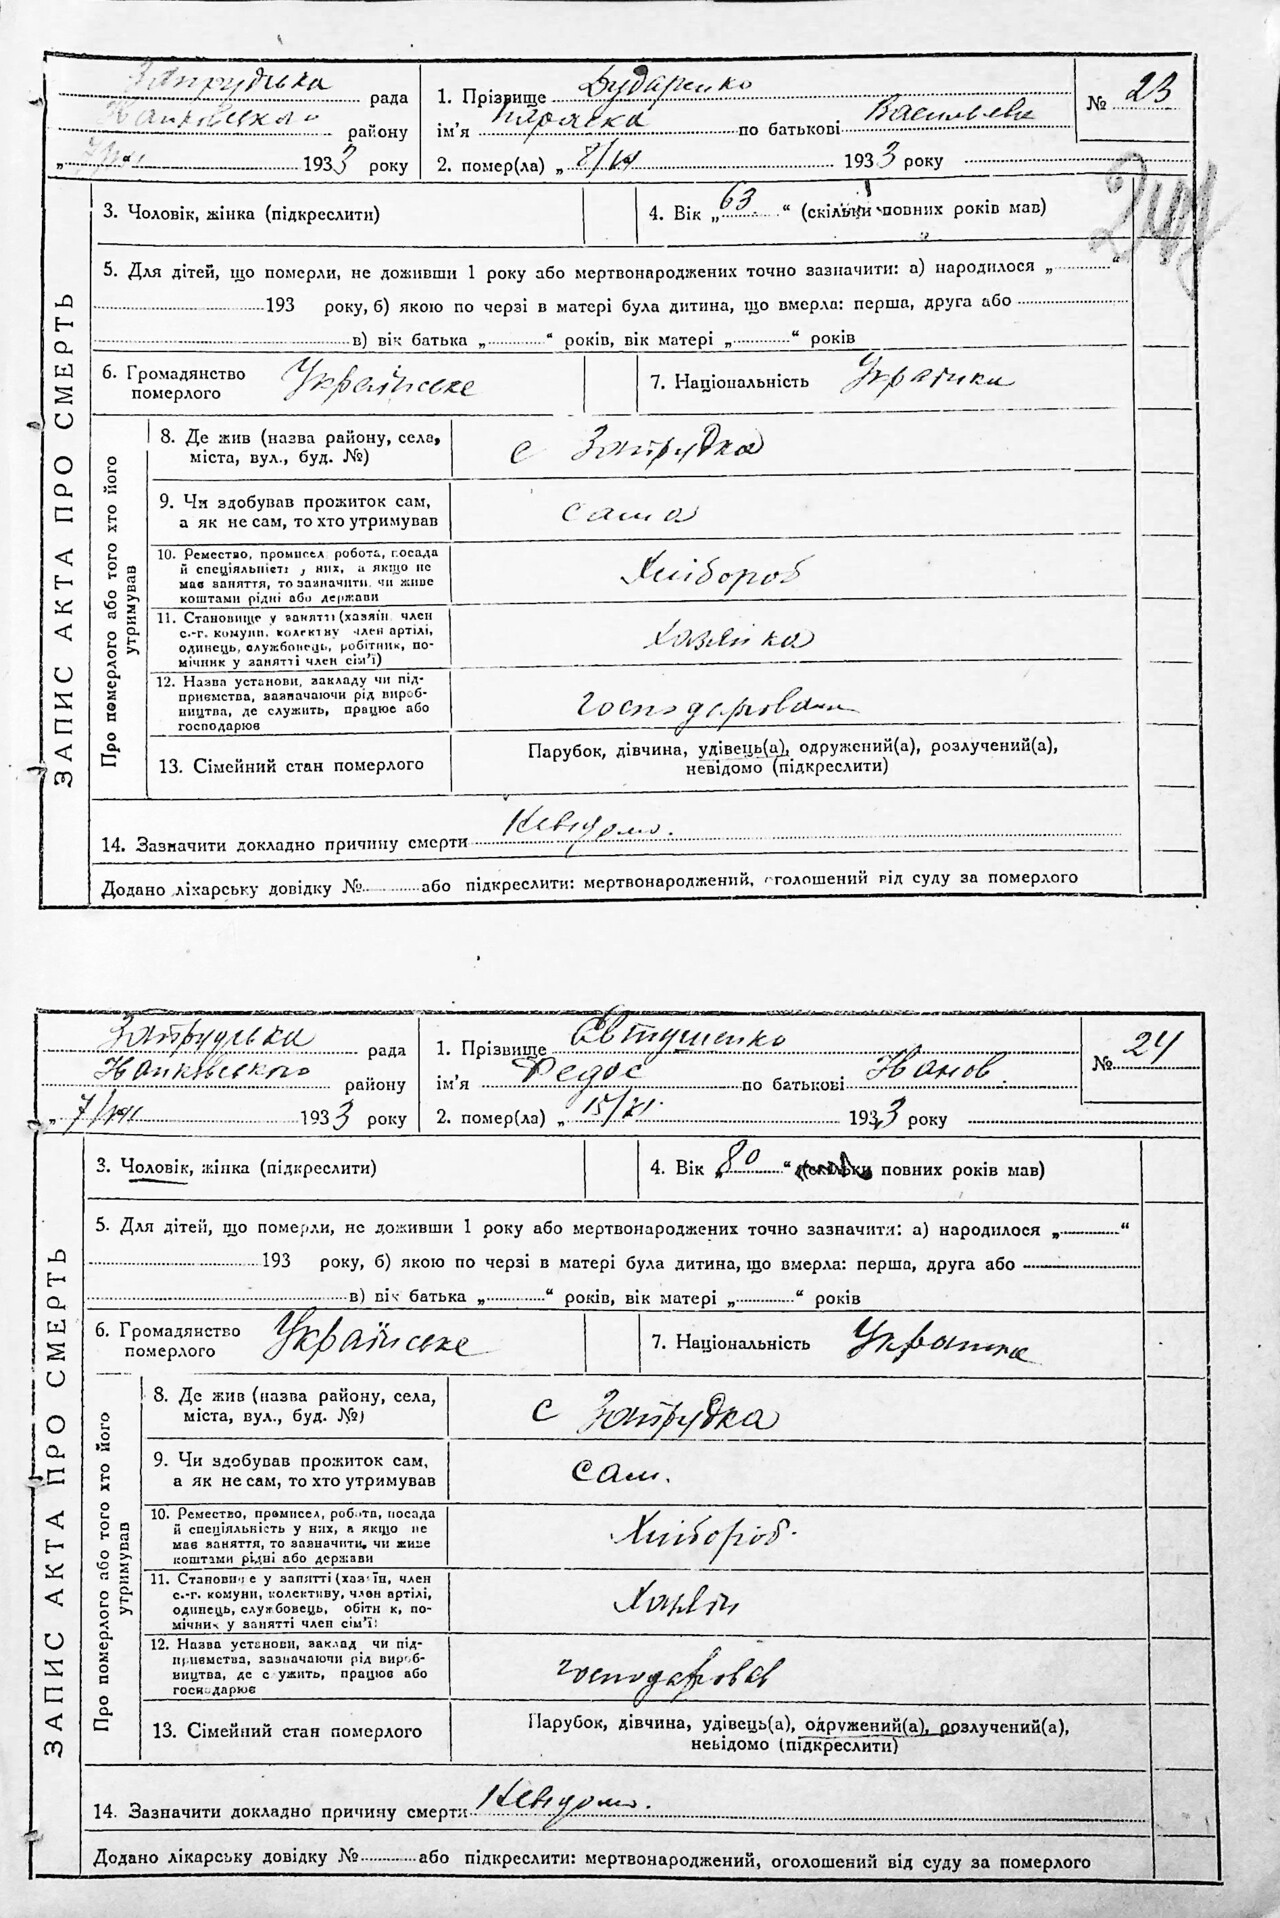 Запрудська рада
1. Прізвище Бударенко
№ 23
району
ім'я Параска по батькові Васильевн
1933 року
2. помер(ла) „ 1933 року
3. Чоловік, жінка (підкреслити)
4. Вік „63“ (скільки повних років мав)
5. Для дітей, що померли, не доживши 1 року або мертвонароджених точно зазначити: а) народилося „ “
193 року, б) якою по черзі в матері була дитина, що вмерла: перша, друга або
в) вік батька „ “ років, вік матері „ “ років
6. Громадянство
померлого
Українське
7. Національність Украинка
ЗАПИС АКТА ПРО СМЕРТЬ
Про померлого або того хто його
утримував
8. Де жив (назва району, села,
міста, вул., буд. №)
с Запрудка
9. Чи здобував прожиток сам,
а як не сам, то хто утримував
сама
10. Ремество, промисел, робота, посада
й спеціяльність у них, а якщо не
має заняття, то зазначити, чи живе
коштами рідні або держави
Хлібороб
11. Становище у занятті (хазяїн, член
с.-г. комуни, колективу, член артілі,
одинець, службовець, робітник, по-
мічник у занятті член сім'ї)
хазяйка
12. Назва установи, закладу чи під-
приємства, зазначаючи рід вироб-
ництва, де служить, працює або
господарює
господарювала
13. Сімейний стан померлого
Парубок, дівчина, удівець(а), одружений(а), розлучений(а),
невідомо (підкреслити)
14. Зазначити докладно причину смерти Невідомо.
Додано лікарську довідку № або підкреслити: мертвонароджений, оголошений від суду за померлого
Запрудська рада
1. Прізвище Євтушенко
№ 24
району
ім'я Федос по батькові Іванов.
„7/ 1933 року
2. помер(ла) „15/ 1933 року
3. Чоловік, жінка (підкреслити)
4. Вік „80“ (скільки повних років мав)
5. Для дітей, що померли, не доживши 1 року або мертвонароджених точно зазначити: а) народилося „ “
193 року, б) якою по черзі в матері була дитина, що вмерла: перша, друга або
в) вік батька „ “ років, вік матері „ “ років
6. Громадянство
померлого
Українське
7. Національність
ЗАПИС АКТА ПРО СМЕРТЬ
Про померлого або того хто його
утримував
8. Де жив (назва району, села,
міста, вул., буд. №)
с Запрудка
9. Чи здобував прожиток сам,
а як не сам, то хто утримував
сам.
10. Ремество, промисел, робота, посада
й спеціяльність у них, а якщо не
має заняття, то зазначити, чи живе
коштами рідні або держави
Хлібороб.
11. Становище у занятті (хазяїн, член
с.-г. комуни, колективу, член артілі,
одинець, службовець, робітник, по-
мічник у занятті член сім'ї)
Хазяїн
12. Назва установи, закладу чи під-
приємства, зазначаючи рід вироб-
ництва, де служить, працює або
господарює
господарював
13. Сімейний стан померлого
Парубок, дівчина, удівець(а), одружений(а), розлучений(а),
невідомо (підкреслити)
14. Зазначити докладно причину смерти Невідомо.
Додано лікарську довідку № або підкреслити: мертвонароджений, оголошений від суду за померлого